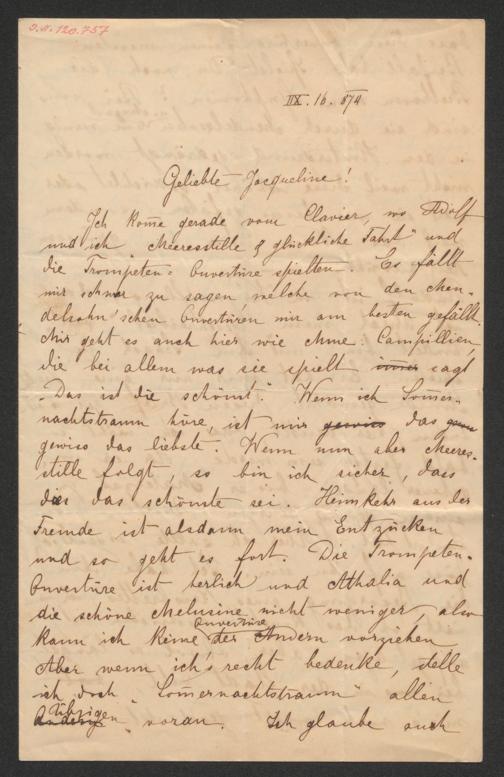 O.N. 120.757
IIX. 16. 874
Geliebte Jacqueline!
Ich kom̄e gerade vom Clavier, wo Adolf
und ich „Meeresstille & glückliche Fahrt" und
die Trompeten-Ouvertüre spielten. Es fällt
mir schwer zu sagen welche von den Men-
delsohn'schen Ouvertüren mir am besten gefällt.
Mir geht es auch hier wie Mme: Campillien,
die bei allem was sie spielt im̄er sagt
„Das ist die schönst." Wenn ich Som̄er-
nachtstraum höre, ist mir gewiss das
gewiss das liebste. Wenn nun aber Meeres-
stille folgt, so bin ich sicher, dass
dies das schönste sei. Heimkehr aus der
Fremde ist alsdann mein Entzücken
und so geht es fort. Die Trompeten-
Ouvertüre ist herlich und Athalia und
die schöne Melusine nicht weniger, also
kann ich keine Ouvertüre der Andern vorziehen
Aber wenn ich's recht bedenke, stelle
ich doch „Som̄ernachtstraum" allen
Übrigen voran. Ich glaube auch